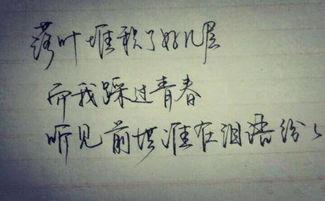 落叶堆积了好几层
而我踩过青春
听见前世谁在泪语纷纷